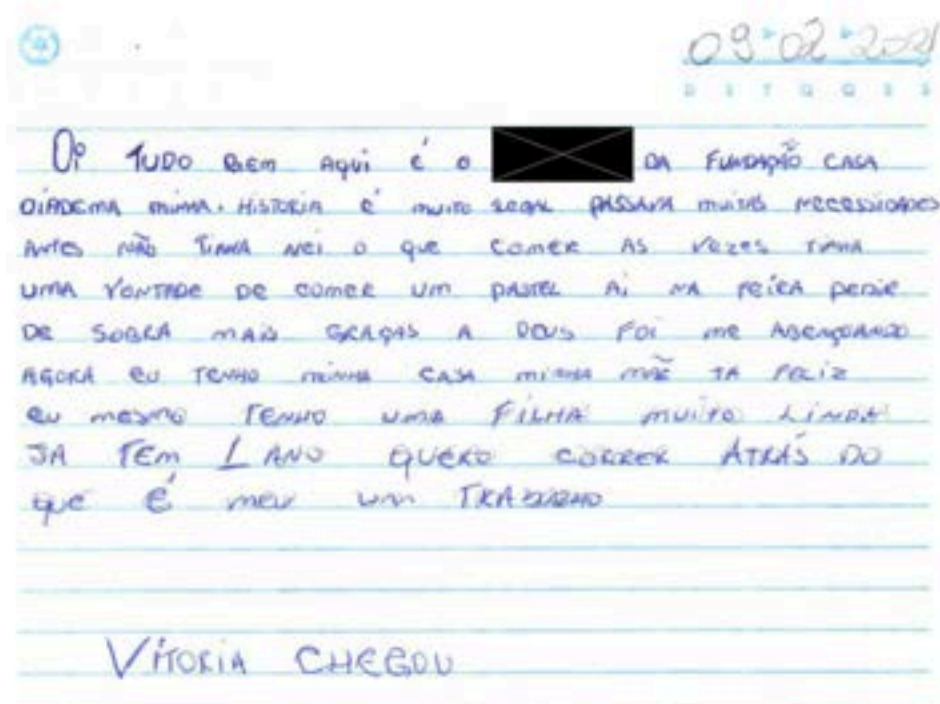 09 02 2021
D S T Q Q S S
Oi TUDO BEM AQUI é O DA FUNDAÇÃO CASA
DIADEMA MINHA. HISTORIA É MUITO LEGAL PASSAVA MUITAS NECESSIDADES
ANTES NÃO TINHA NEI O QUE COMER AS VEZES TINHA
UMA VONTADE DE COMER UM PASTEL AI NA FEIRA PEDIR
DE SOBRA MAIS GRAÇAS A DEUS FOI ME ABENÇOANDO
AGORA EU TENHO MINHA CASA MINHA MÃE TA FELIZ
EU MESMO TENHO UMA FILHA MUITO LINDA
JA TEM 1 ANO QUERO CORRER ATRÁS DO
QUE É MEU UM TRABALHO
VITORIA CHEGOU